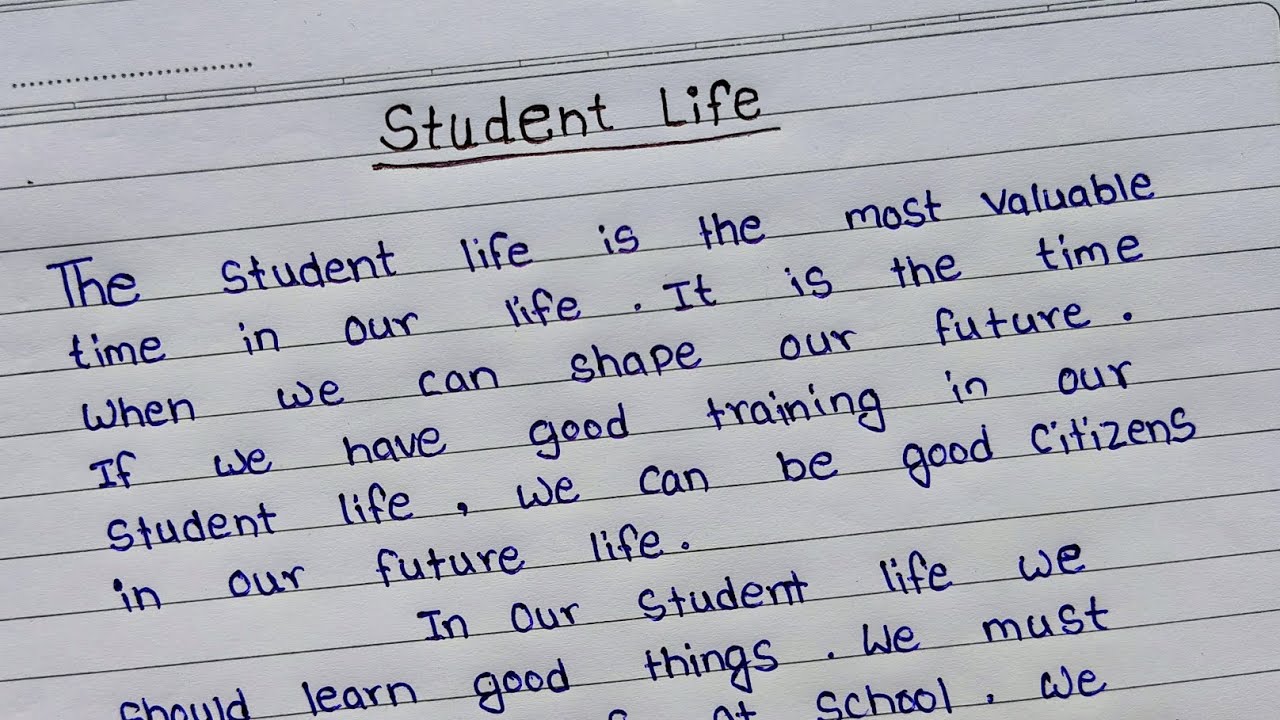 Student Life
The student life is the most valuable
time in our life. It is the time
when we can shape our future.
If we have good training in our
student life, we can be good citizens
in our future life.
In our student life we
should learn good things. We must
at school, we